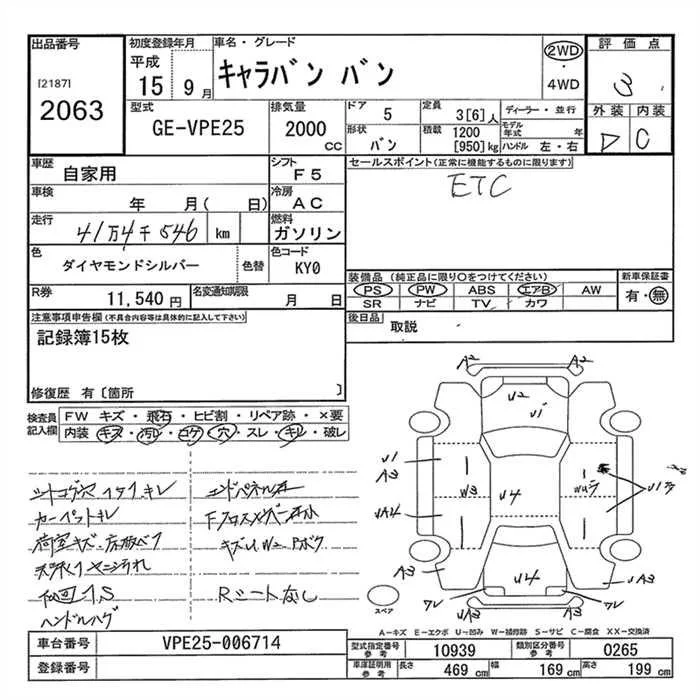 出品番号
[2187]
2063
初度登録年月
平成
15 9 月
車名・グレード
キャラバン バン
2WD
・
4WD
評価点
3
外装 内装
D C
型式
GE-VPE25
排気量
2000
CC
ドア
5
定員
3[6]人
ディーラー・並行
形状
バン
積載
1200
[950]kg
モデル
年式 年
ハンドル 左・右
車歴
自家用
シフト
F5
セールスポイント(正常に機能するものに限ります)
ETC
車検
年 月( 日)
冷房
AC
走行
41万4千546 km
燃料
ガソリン
色
ダイヤモンドシルバー
色替
色コード
KY0
装備品 (純正品に限り○をつけてください)
PS PW ABS エアB AW
SR ナビ TV カワ
新車保証書
有・無
R券
11,540 円
名変通知期限
月 日
後日品
取説
注意事項申告欄(不具合内容等は具体的に記入して下さい)
記録簿15枚
修復歴 有〔箇所 〕
検査員
記入欄
FW キズ・飛石・ヒビ割・リペア跡・×要
内装 キズ・汚レ・コゲ・穴・スレ・キレ・破レ
シートコゲ穴
キレ
カーペットキレ
荷室キズ
ハンドルハゲ
Rシートなし
A2 A2
U2
U1
U1
A3
W3
U4
UA4
A3
U4
A3
スペア
A―キズ E―エクボ U―凹み W―補修跡 S―サビ C―腐食 XX―交換済
車台番号
VPE25-006714
登録番号
型式指定番号
参考
10939
類別区分番号
参考
0265
車庫証明用
参考
長さ
469 cm
幅
169 cm
高さ
199 cm